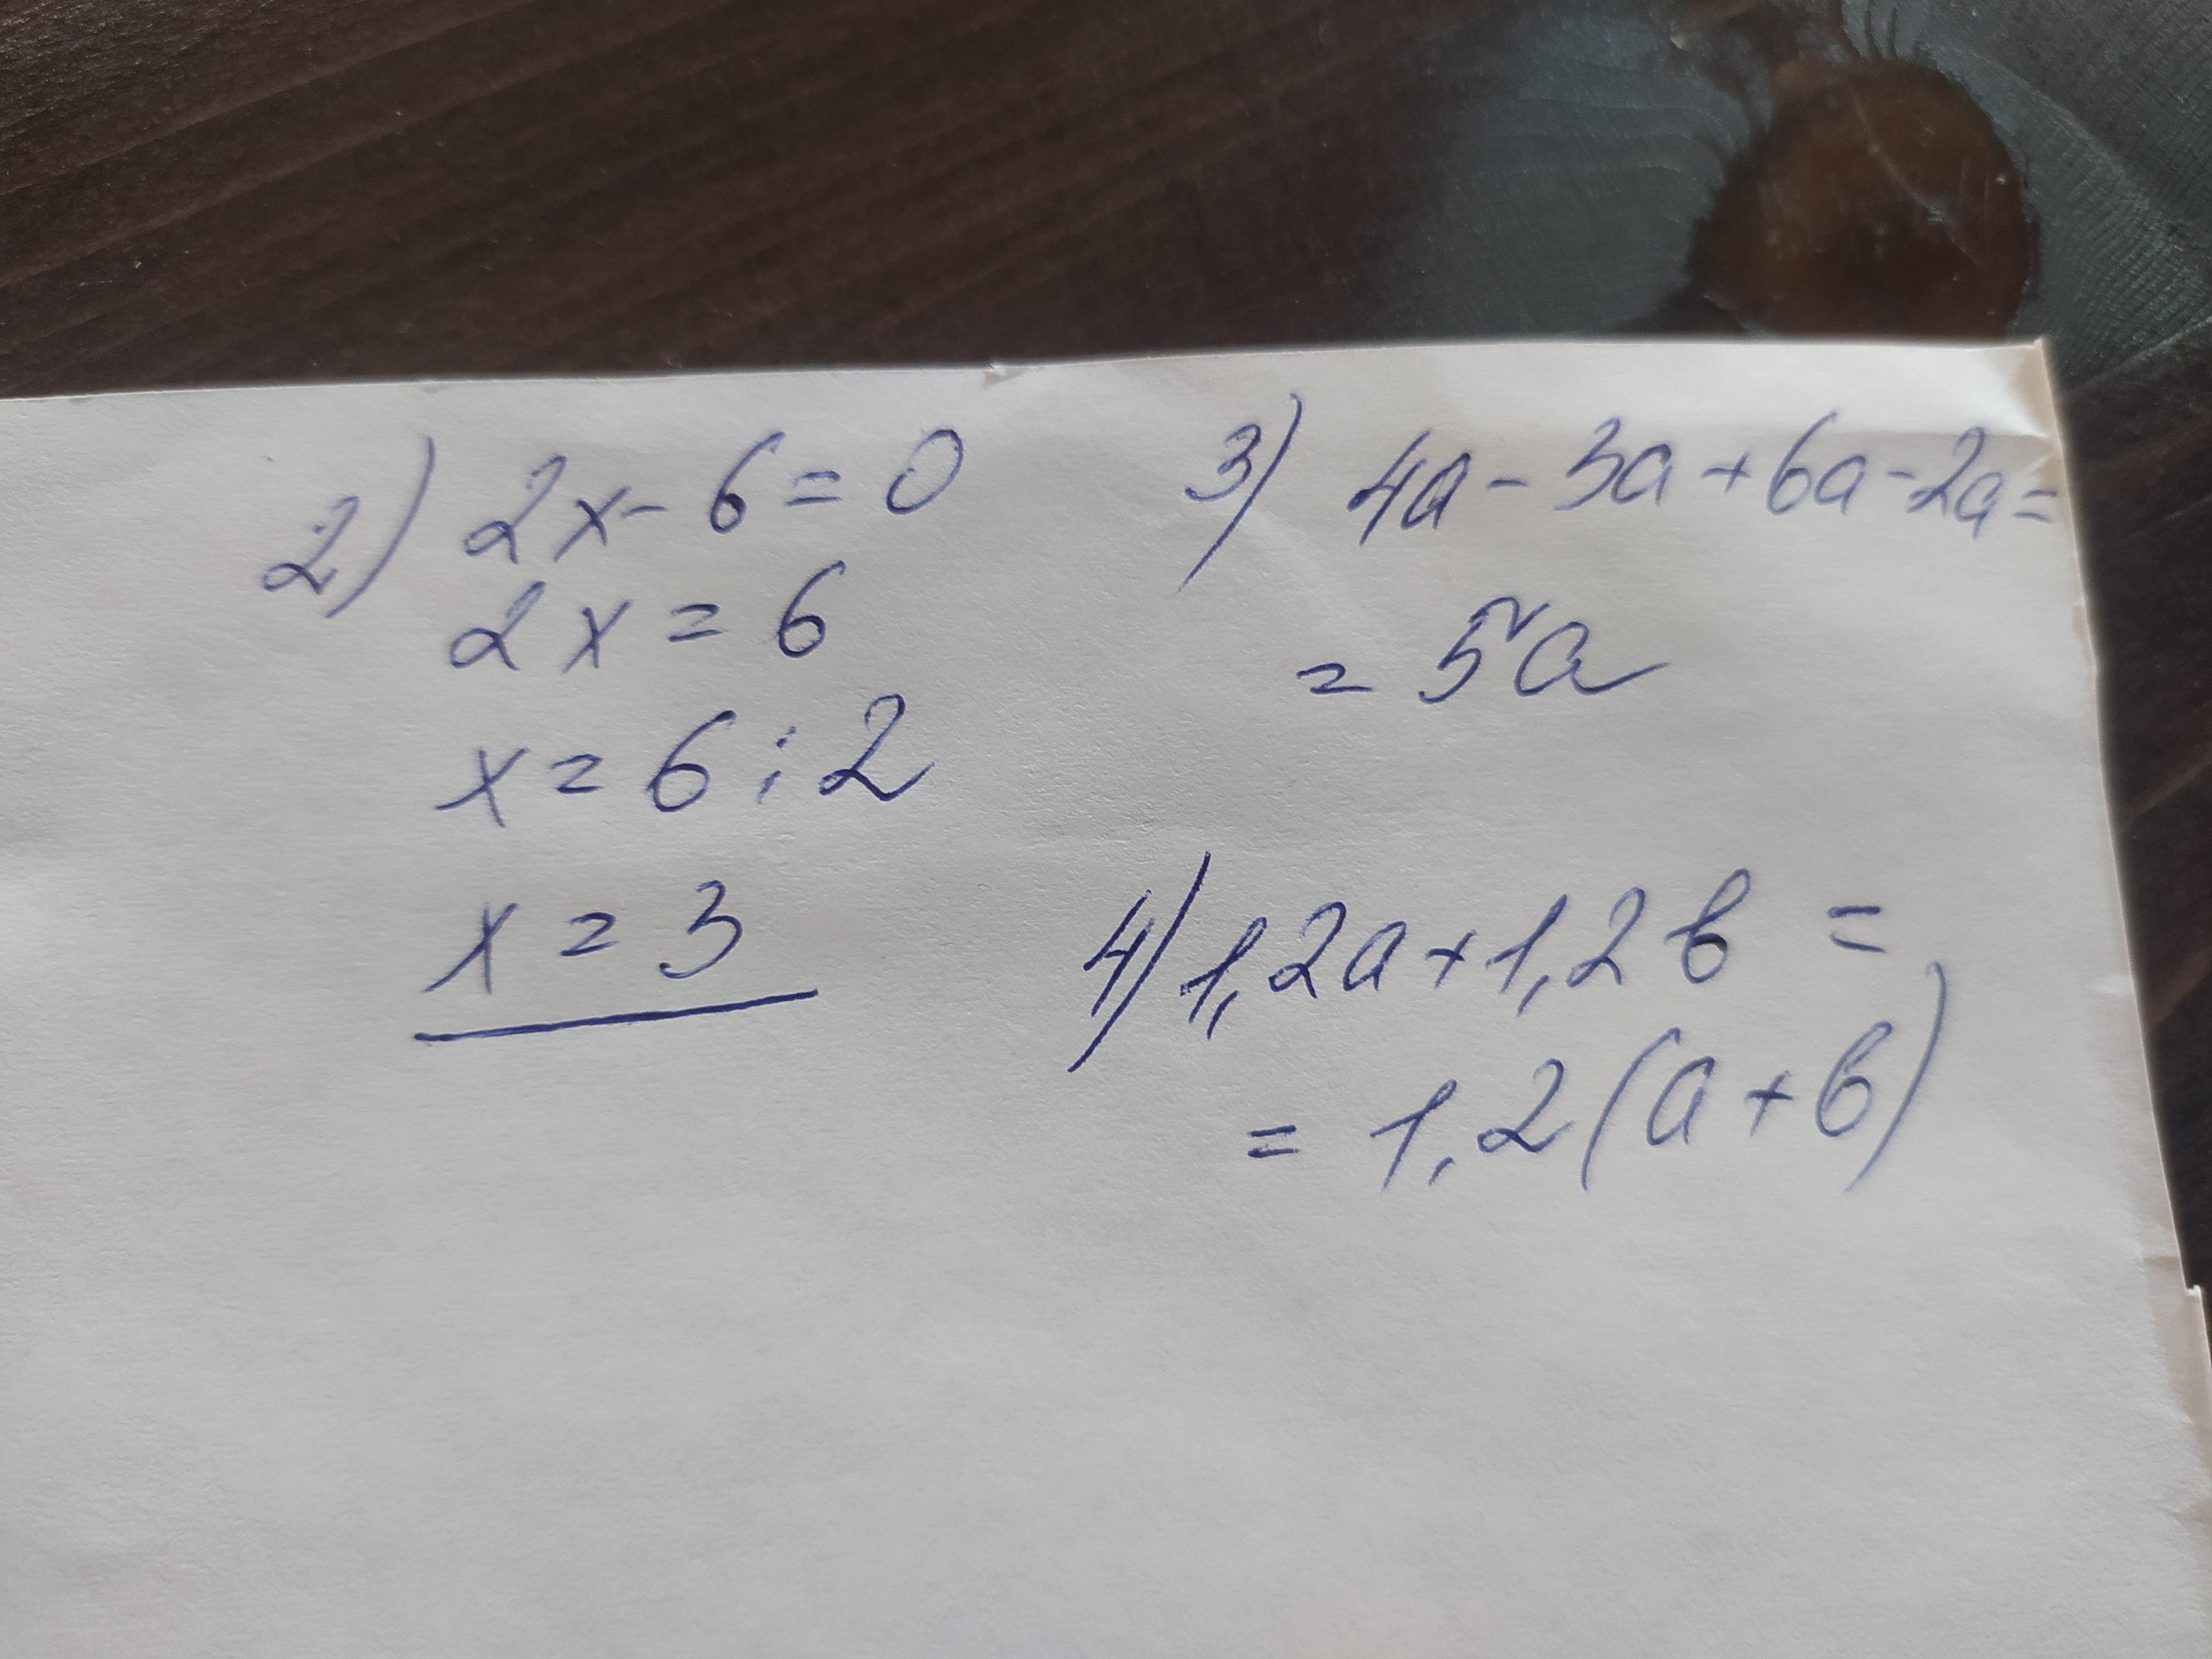 2) 2x - 6 = 0
2x = 6
x = 6 : 2
x = 3
3) 4a - 3a + 6a - 2a =
= 5a
4) 1,2a + 1,2b =
= 1,2(a + b)